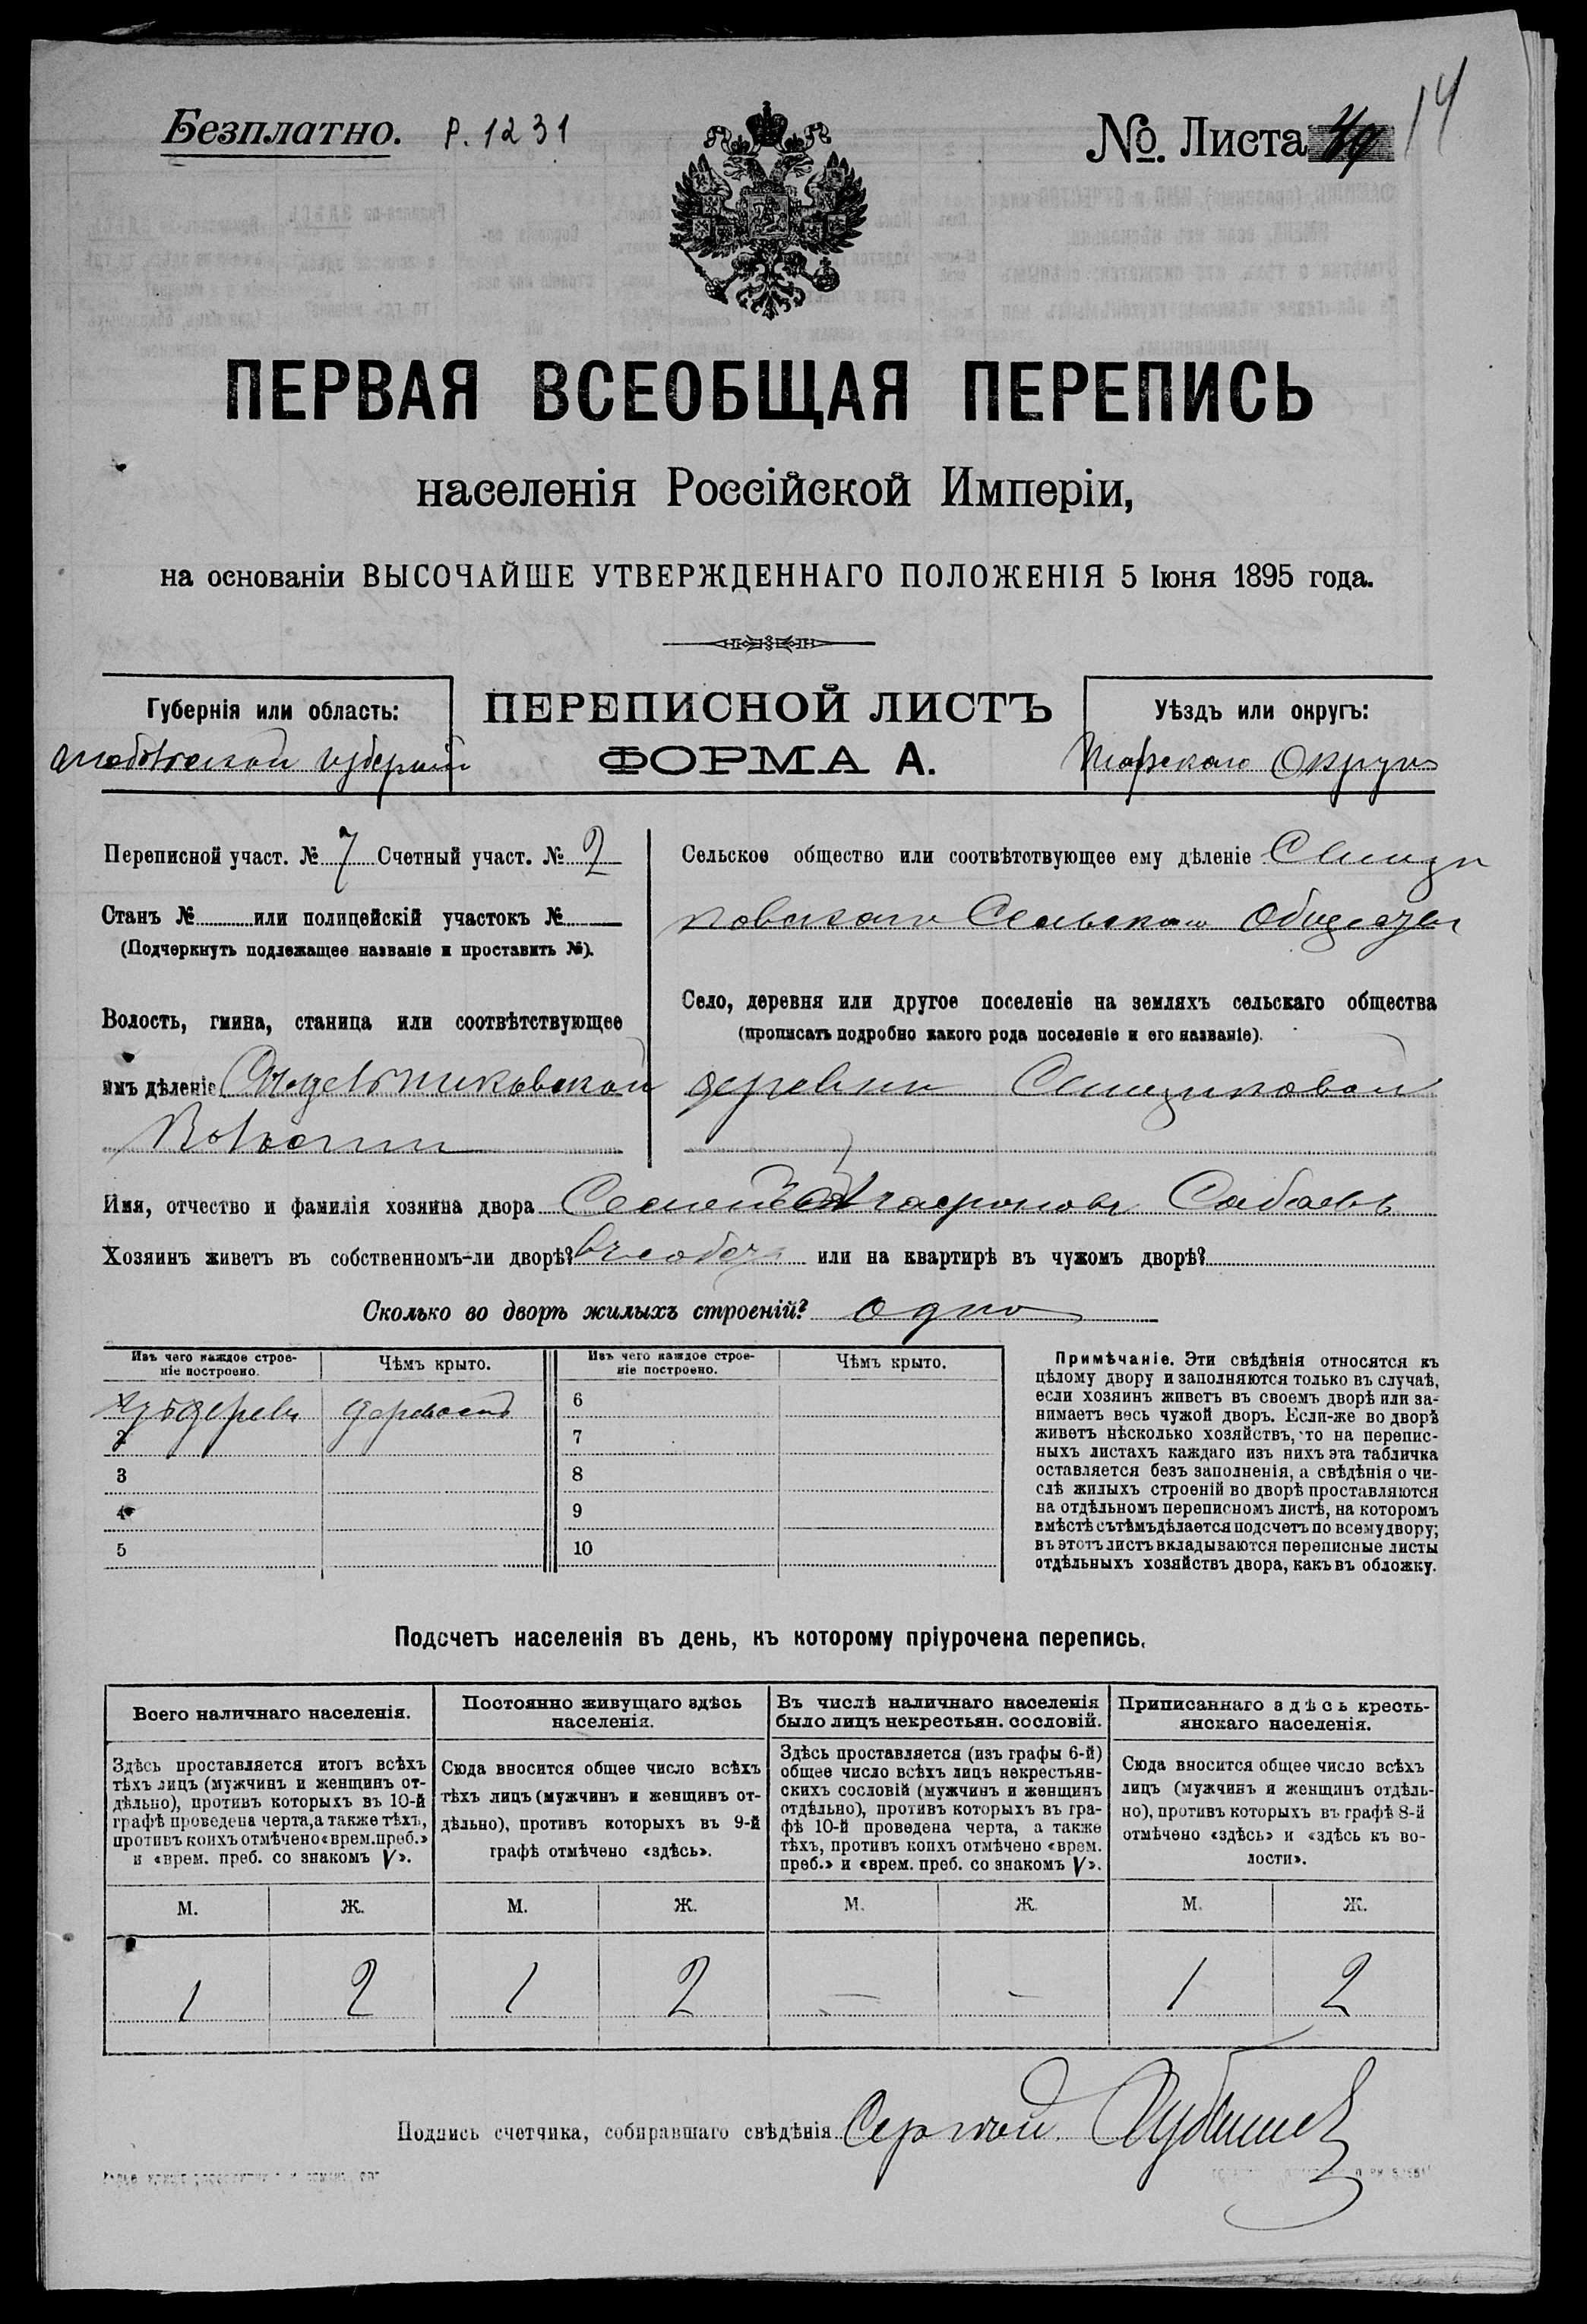 Безплатно. Р. 1231
№. Листа 14
ПЕРВАЯ ВСЕОБЩАЯ ПЕРЕПИСЬ
населенія Россійской Имперіи,
на основаніи ВЫСОЧАЙШЕ УТВЕРЖДЕННАГО ПОЛОЖЕНІЯ 5 Іюня 1895 года.
ПЕРЕПИСНОЙ ЛИСТЪ
ФОРМА А.
Губернія или область:
Тобольской губерніи
Уѣздъ или округъ:
Тарскаго Округа
Переписной участ. № 7 Счетный участ. № 2
Станъ № или полицейскій участокъ №
(Подчеркнуть подлежащее названіе и проставить №).
Волость, гмина, станица или соотвѣтствующее
имъ дѣленіе Седельниковской
Волости
Сельское общество или соотвѣтствующее ему дѣленіе
Сельскаго Общества
Село, деревня или другое поселеніе на земляхъ сельскаго общества
(прописать подробно какого рода поселеніе и его названіе).
деревни
Имя, отчество и фамилія хозяина двора Семенъ
Хозяинъ живетъ въ собственномъ-ли дворѣ? или на квартирѣ въ чужомъ дворѣ?
Сколько во дворѣ жилыхъ строеній? одно
Изъ чего каждое строе-
ніе построено.
Чѣмъ крыто.
Изъ чего каждое строе-
ніе построено.
Чѣмъ крыто.
2
3
4
5
6
7
8
9
10
Примѣчаніе. Эти свѣдѣнія относятся къ
цѣлому двору и заполняются только въ случаѣ,
если хозяинъ живетъ въ своемъ дворѣ или за-
нимаетъ весь чужой дворъ. Если-же во дворѣ
живетъ нѣсколько хозяйствъ, то на перепис-
ныхъ листахъ каждаго изъ нихъ эта табличка
оставляется безъ заполненія, а свѣдѣнія о чи-
слѣ жилыхъ строеній во дворѣ проставляются
на отдѣльномъ переписномъ листѣ, на которомъ
вмѣстѣ съ тѣмъ дѣлается подсчетъ по всему двору;
въ этотъ листъ вкладываются переписные листы
отдѣльныхъ хозяйствъ двора, какъ въ обложку.
Подсчетъ населенія въ день, къ которому пріурочена перепись.
Всего наличнаго населенія.
Здѣсь проставляется итогъ всѣхъ
тѣхъ лицъ (мужчинъ и женщинъ от-
дѣльно), противъ которыхъ въ 10-й
графѣ проведена черта, а также тѣхъ,
противъ коихъ отмѣчено «врем. преб.»
и «врем. преб. со знакомъ V».
М. Ж.
1 2
Постоянно живущаго здѣсь
населенія.
Сюда вносится общее число всѣхъ
тѣхъ лицъ (мужчинъ и женщинъ от-
дѣльно), противъ которыхъ въ 9-й
графѣ отмѣчено «здѣсь».
М. Ж.
1 2
Въ числѣ наличнаго населенія
было лицъ некрестьян. сословій.
Здѣсь проставляется (изъ графы 6-й)
общее число всѣхъ лицъ некрестьян-
скихъ сословій (мужчинъ и женщинъ
отдѣльно), противъ которыхъ въ гра-
фѣ 10-й проведена черта, а также
тѣхъ, противъ коихъ отмѣчено «врем.
преб.» и «врем. преб. со знакомъ V».
М. Ж.
— —
Приписаннаго здѣсь кресть-
янскаго населенія.
Сюда вносится общее число всѣхъ
лицъ (мужчинъ и женщинъ отдѣль-
но), противъ которыхъ въ графѣ 8-й
отмѣчено «здѣсь» и «здѣсь къ во-
лости».
М. Ж.
1 2
Подпись счетчика, собиравшаго свѣдѣнія Сергѣй